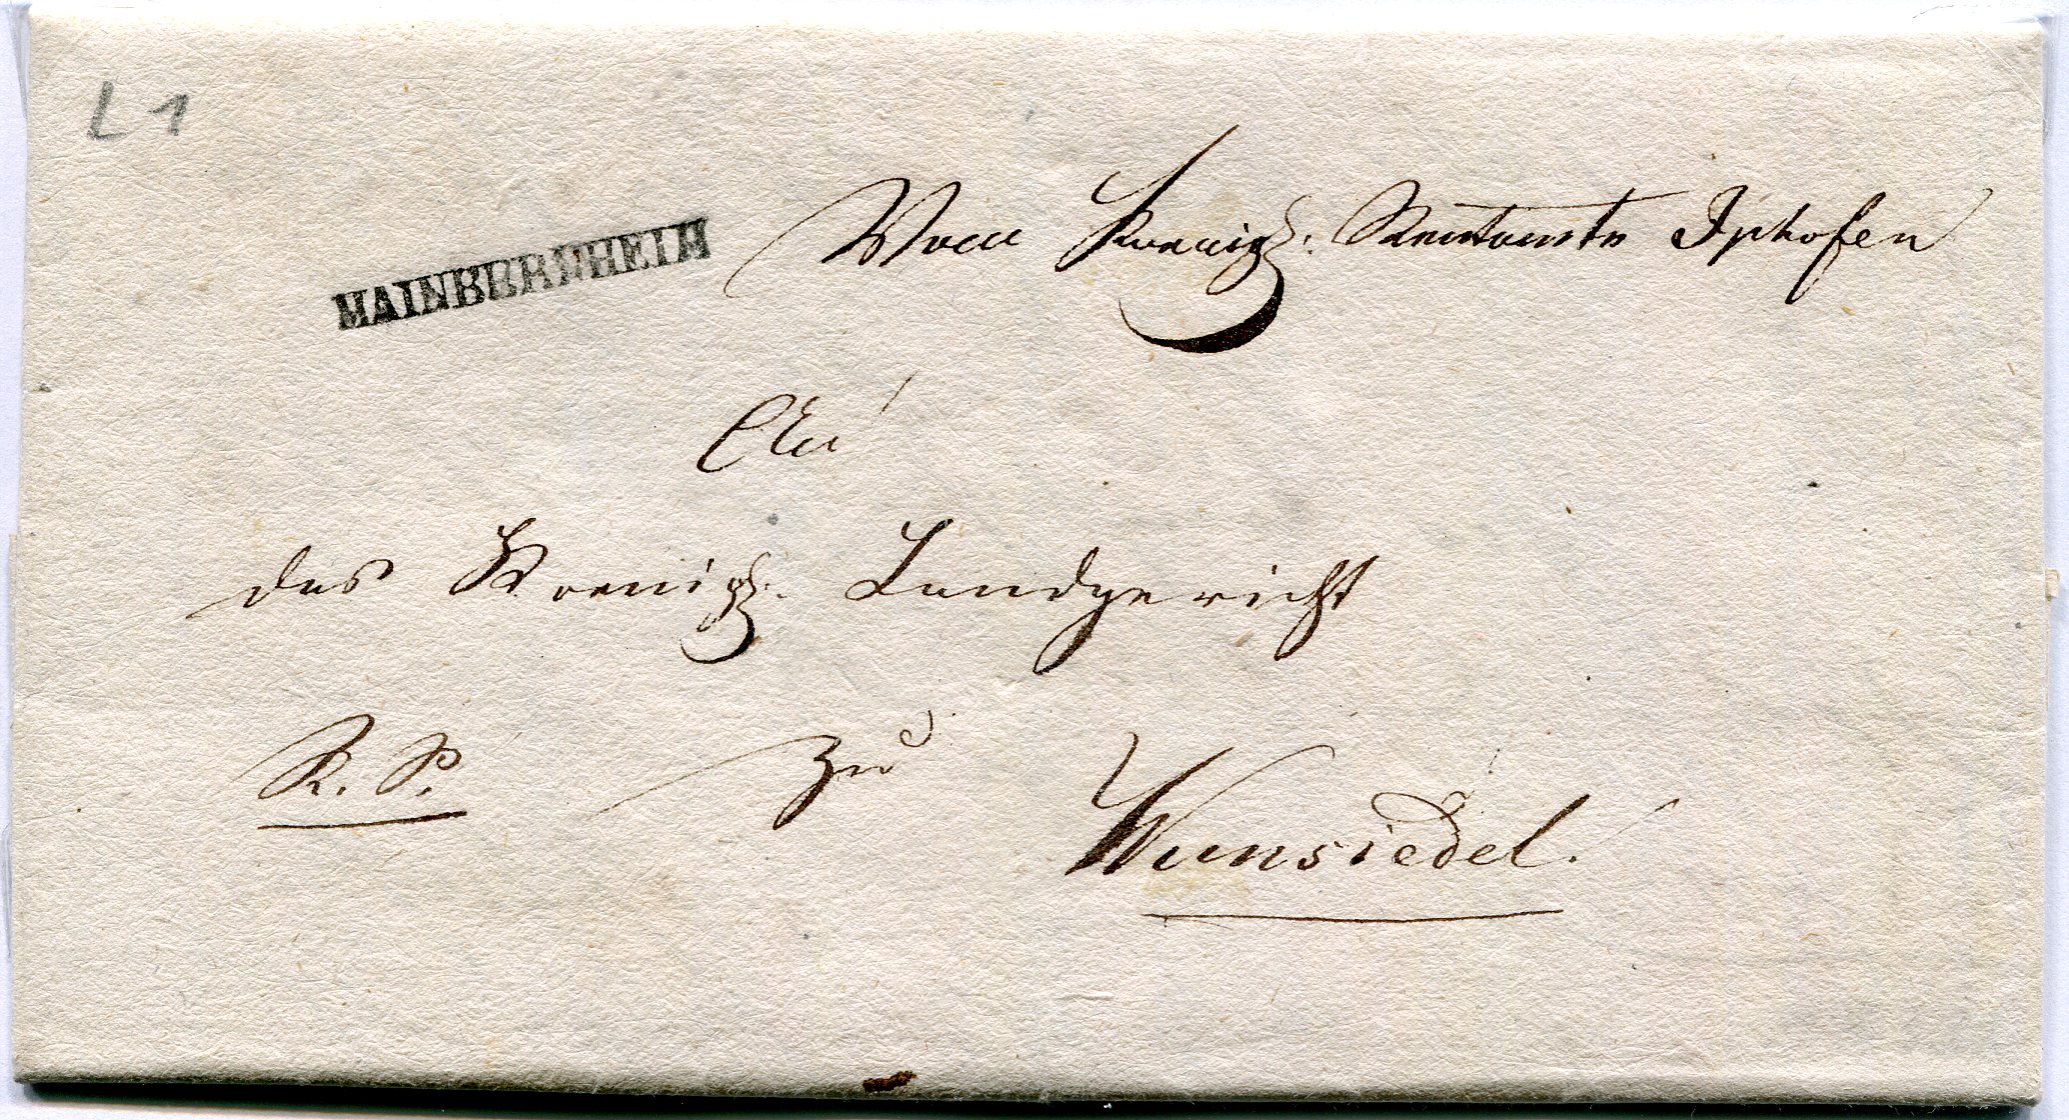 L 1
MAINBERNHEIM
Vom Koenigl: Rentamte Iphofen
An
das Koenigl: Landgericht
R. S. zu
Wunsiedel.